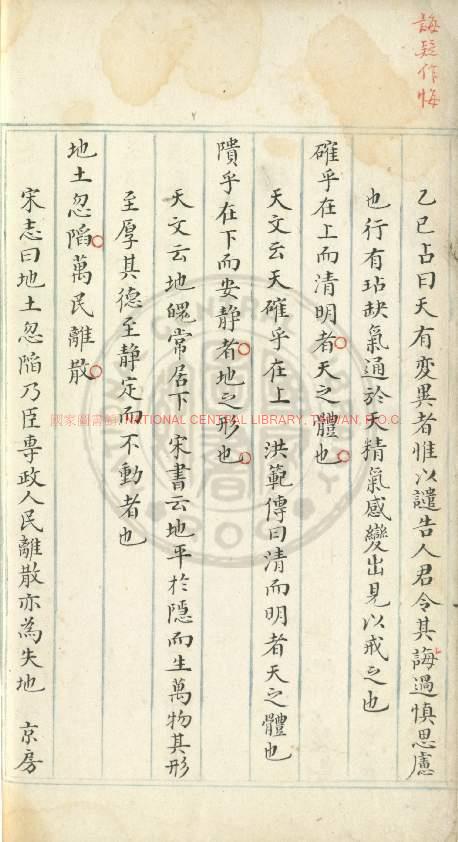 誨疑作悔
乙巳占曰天有变異者惟以譴告人君令其誨過慎思慮
也行有玷缺氣通於天精氣感變出見以戒之也
確乎在上而清明者天之體也
天文云天確乎在上 洪範傳曰清而明者天之體也
隤乎在下而安静者地之形也
天文云地隗常居下 宋書云地平於隱而生萬物其形
至厚其德至静定而不動者也
地土忽陷萬民離散
宋志曰地土忽陷乃臣專政人民離散亦為失地 京房
國家圖書館 NATIONAL CENTRAL LIBRARY, TAIWAN, R.O.C